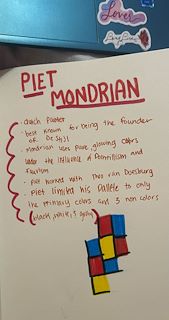 Lover
PIET
MONDRIAN
- Dutch Painter
- best known for being the founder
of De Stijl
- Mondrian uses pure, glowing colors
under the influence of Pointillism and
Fauvism
- Piet worked with Theo van Doesburg
- Piet limited his Pallete to only
the primary colors and 3 non colors
(black, white, & gray)